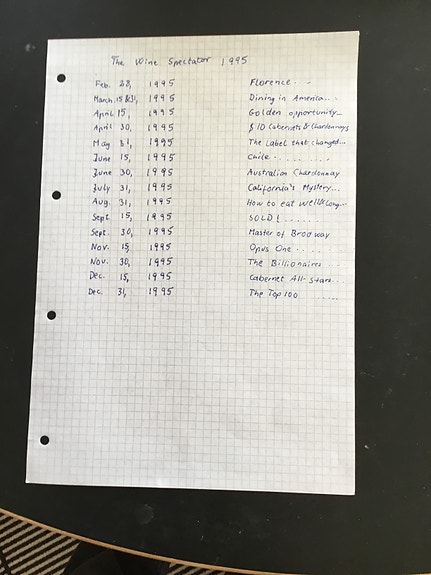 The Wine Spectator 1995
Feb. 28, 1995 Florence . . .
March 15 & 31, 1995 Dining in America . . .
April 15, 1995 Golden opportunity...
April 30, 1995 $ 10 Cabernets & Chardonnays
May 31, 1995 The Label that changed...
June 15, 1995 Chile . . . . . . . .
June 30, 1995 Australian Chardonnay
July 31, 1995 California's Mystery...
Aug. 31, 1995 How to eat well & Long...
Sept. 15, 1995 SOLD ! . . . . .
Sept. 30, 1995 Master of Brodway
Nov. 15, 1995 Opus One . . . . .
Nov. 30, 1995 The Billionaires . . .
Dec. 15, 1995 Cabernet All-stars . . .
Dec. 31, 1995 The Top 100 . . . . . .